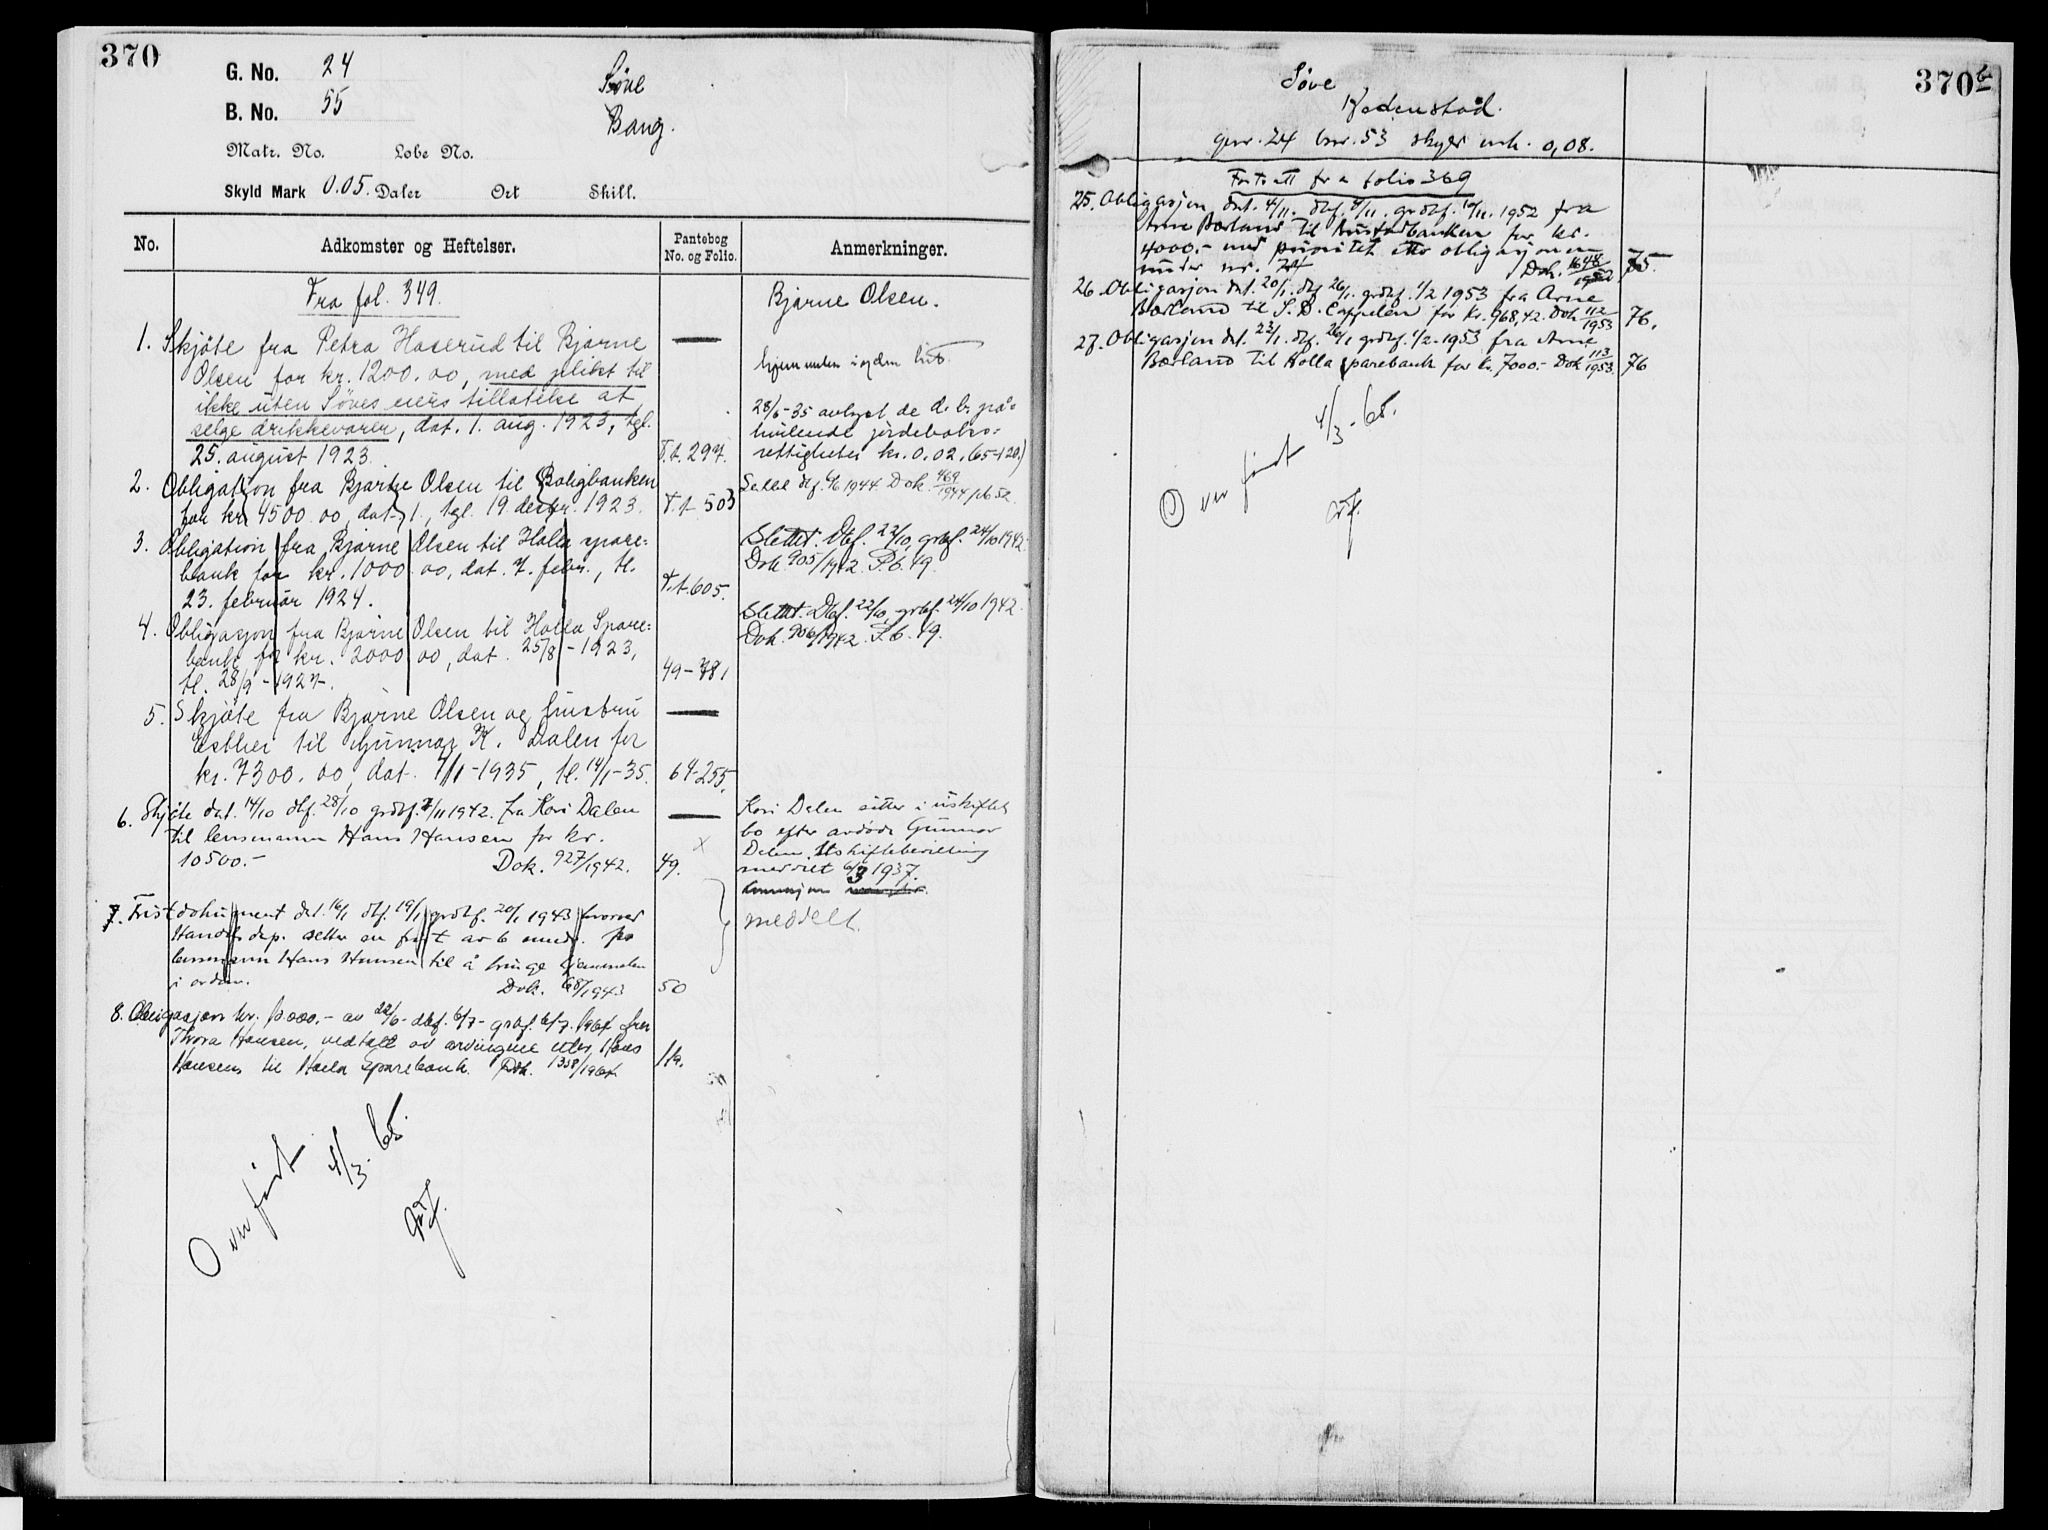 370
G. No. 24
B. No. 55
Søve
Bang.
Matr. No. Løbe No.
Skyld Mark 0.05. Daler Ort Skill.
No. Adkomster og Heftelser. Pantebog No. og Folio. Anmerkninger.
Fra fol. 349.
Bjarne Olsen.
1. Skjøte fra Petra Haserud til Bjarne
Olsen for kr. 1200.00, med plikt til
ikke uten Søves eiers tillatelse at
selge drikkevarer, dat. 1. aug. 1923, tgl.
25. august 1923. T.t. 297.
28/6-35 avlyst de d. br. på-
hvilende jordeboks-
rettigheter kr. 0.02. (65-120.)
2. Obligation fra Bjarne Olsen til Boligbanken
for kr. 4500.00, dat. 1., tgl. 19. desbr. 1923. T.t. 503
Dok. 469/1944 pb 52.
3. Obligation fra Bjarne Olsen til Holla spare-
bank for kr. 1000.00, dat. 7. febr., tl.
23. februar 1924. T.t. 605.
Slettet. Dbf. 22/10, grbf. 24/10 1942.
Dok. 905/1942. P.b. 49.
4. Obligasjon fra Bjarne Olsen til Holla Spare-
bank for kr. 2000.00, dat. 25/8-1923,
tl. 28/9-1927. 49-781
Slettet. Dbf. 22/10, grbf. 24/10 1942.
Dok. 906/1942. P.b. 49.
5. Skjøte fra Bjarne Olsen og hustru
Esther til Gunnar K. Dalen for
kr. 7300.00, dat. 7/1-1935, tl. 14/1-35. 64-255.
6. Skjøte dat. 14/10 dbf. 28/10 grdbf. 2/11 1942. fra Kari Dalen
til lensmann Hans Hansen for kr.
10500.- Dok. 927/1942. 49.
Kari Dalen sitter i uskiftet
bo efter avdøde Gunnar
Dalen. Uskiftebevilling
meddelt 6/3 1937.
meddelt.
7. Fristdokument dat. 16/1 dbf. 19/1 grdbf. 20/1 1943 hvorved
Handelsdep. setter en frist av 6 mndr. for
lensmann Hans Hansen til å bringe hjemmelen
i orden. Dok. 68/1943 50
8. Obligasjon kr. 10.000.- av 22/6- dbf. 6/7- grbf. 6/7-1964 fra
Thora Hansen, vedtatt av arvingene etter Hans
Hansen til Holla Sparebank. Dok. 1358/1964 11a.
Overført 4/3-65.
370b
Søve
Kodenstad.
gnr. 24 bnr. 53 skyld mk. 0,08.
Fortsatt fra folio 369
25. Obligasjon dat. 4/11. dbf. 8/11. grdbf. 10/11. 1952 fra
Arne Børland til Austadbanken for kr.
4000.- med prioritet etter obligasjonen
under nr. 24 Dok. 1648/1952 75.
26. Obligasjon dat. 20/1. dbf. 26/1. grdbf. 1/2 1953 fra Arne
Børland til S. D. Cappelen for kr. 968,42. Dok 112/1953 76.
27. Obligasjon dat. 23/1. dbf. 26/1 grdbf. 1/2-1953 fra Arne
Børland til Holla Sparebank for kr. 7000.- Dok 113/1953. 76
Overført 4/3-65.